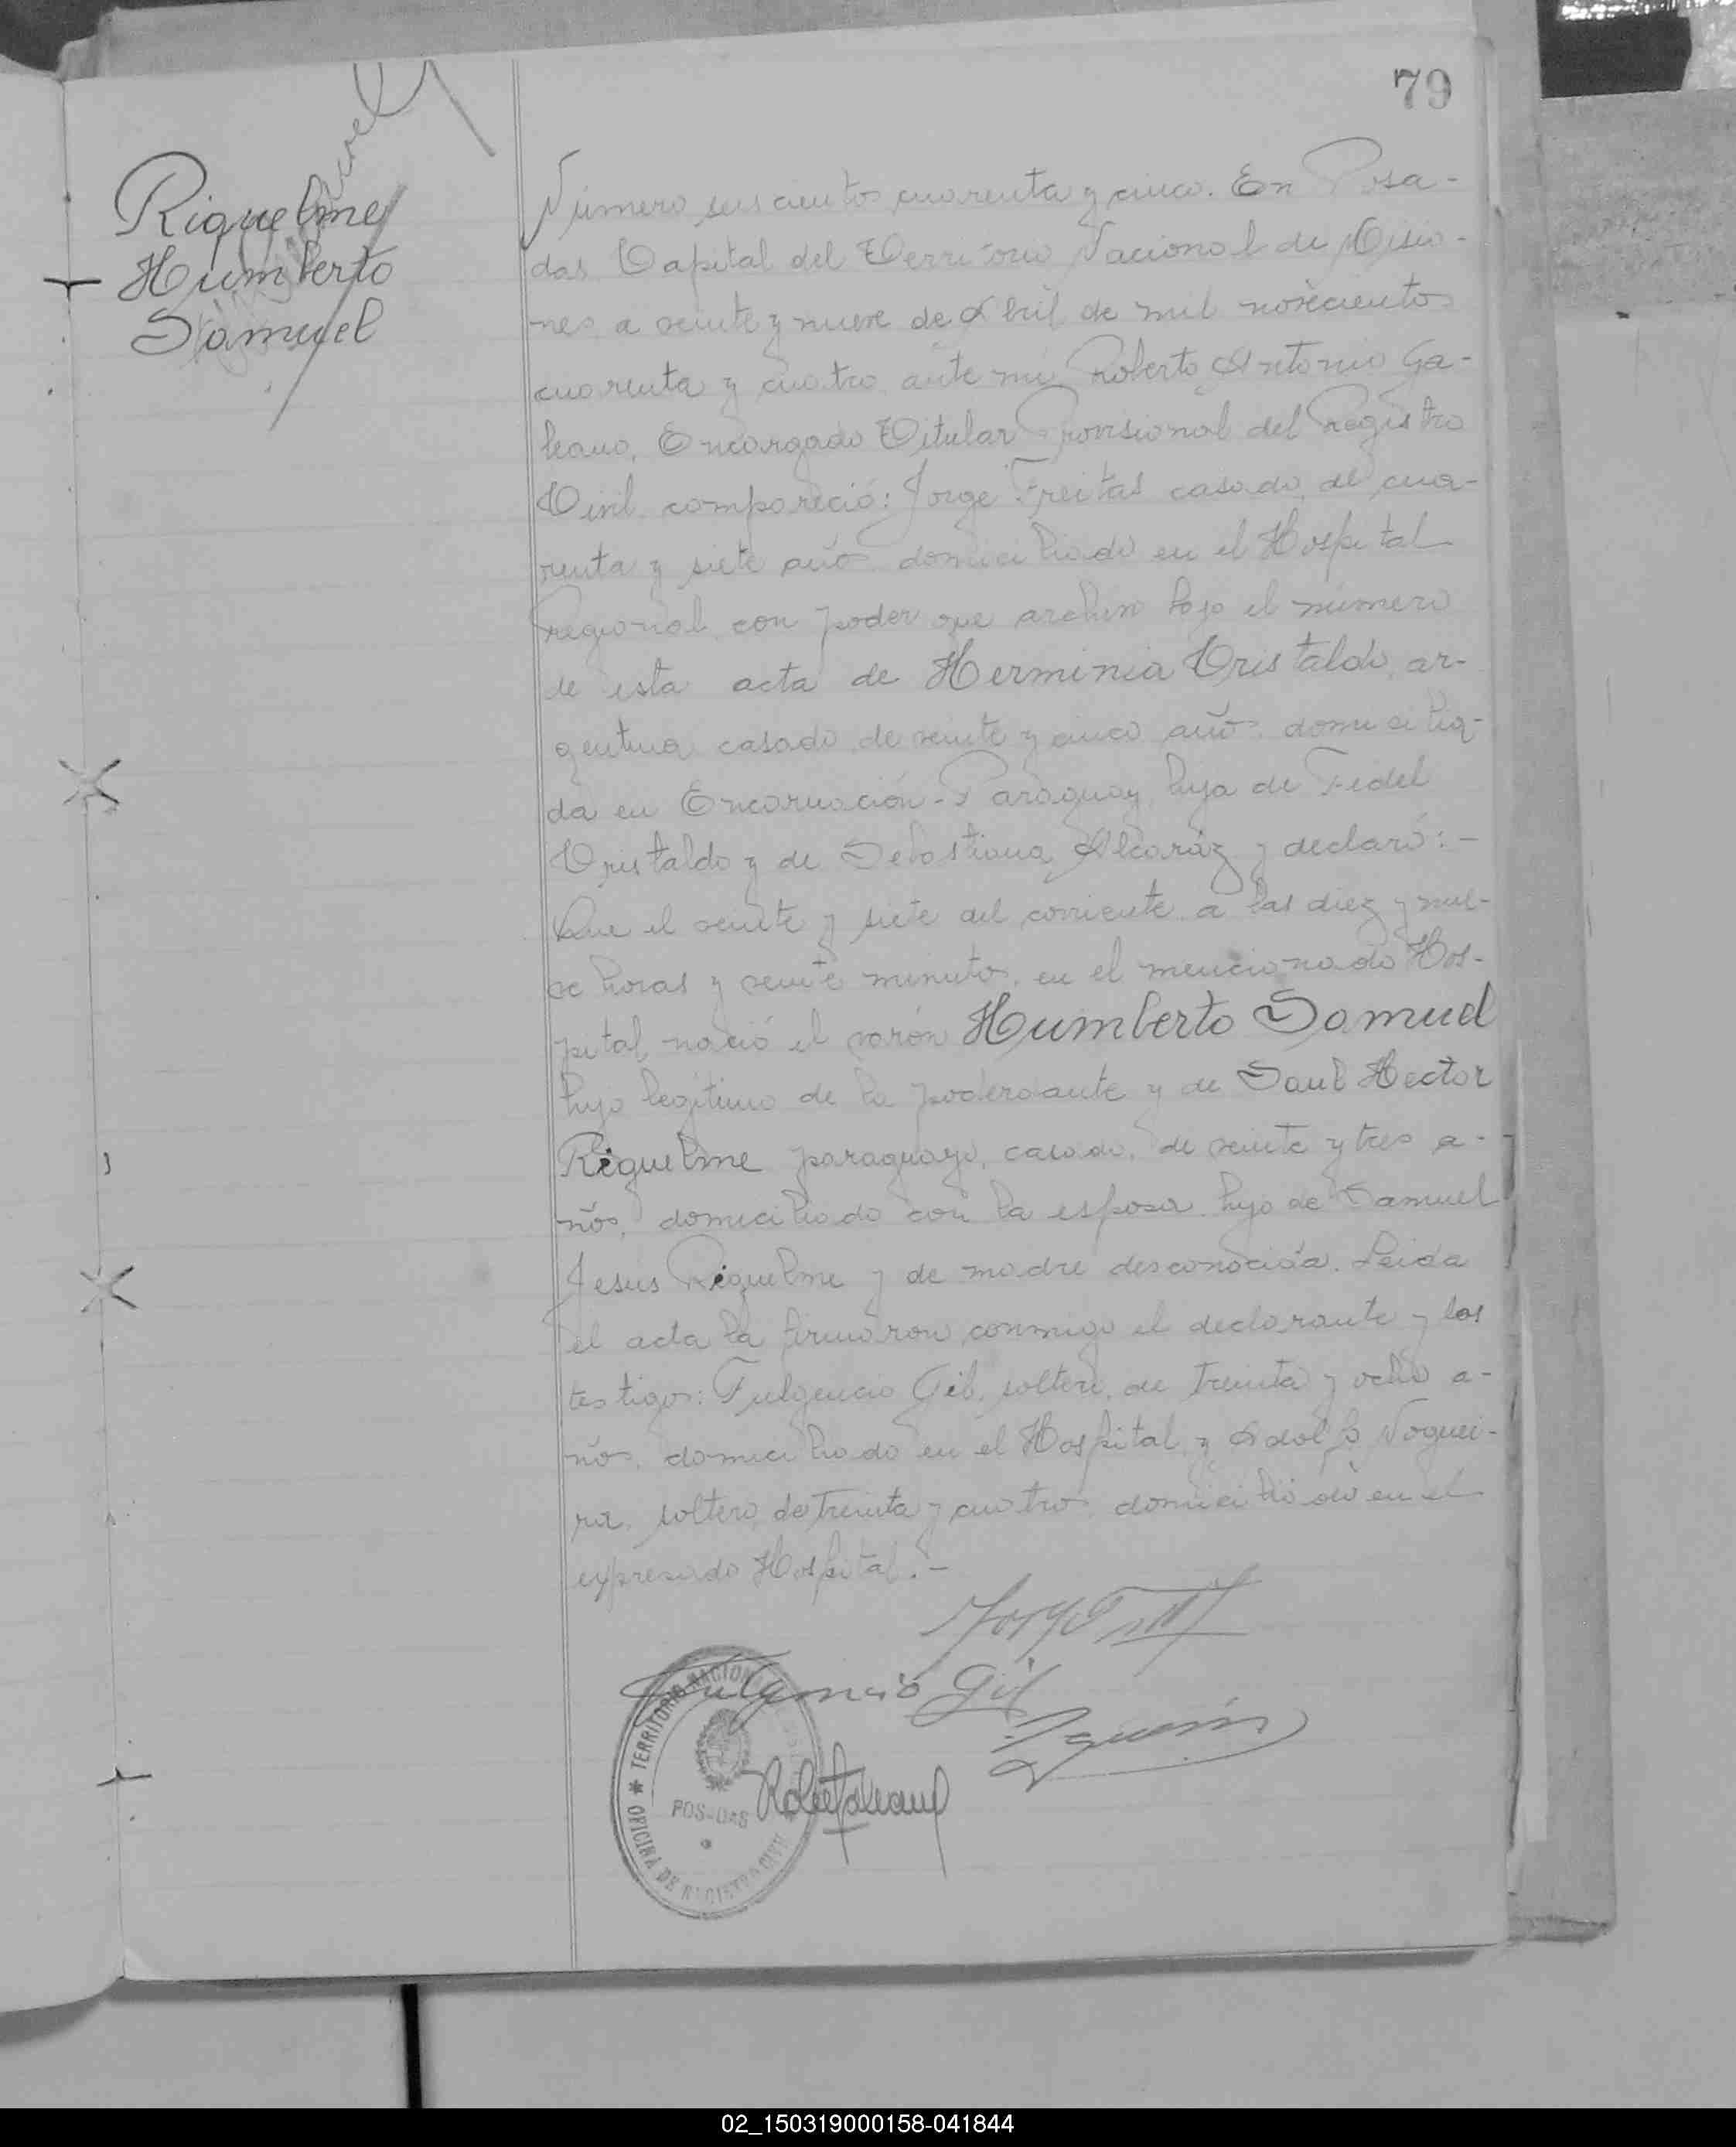 79
Riquelme
Humberto
Samuel
Número seiscientos cuarenta y cinco. En Posa-
das Capital del Territorio Nacional de Misio-
nes a veinte y nueve de Abril de mil novecientos
cuarenta y cuatro ante mi Roberto Antonio Ga-
leano, Encargado Titular Provisional del Registro
Civil compareció: Jorge Freitas casado, de cua-
renta y siete años domiciliado en el Hospital
regional con poder que archivo bajo el número
de esta acta de Herminia Cristaldo, ar-
gentina casada, de veinte y cinco años, domicilia-
da en Encarnación-Paraguay, hija de Fidel
Cristaldo y de Sebastiana Alcaráz y declaró:-
Que el veinte y siete del corriente a las diez y nue-
ve horas y veinte minutos, en el mencionado Hos-
pital, nació el varón Humberto Samuel
hijo legítimo de la poderdante y de Saul Hector
Riquelme paraguayo, casado, de veinte y tres a-
ños, domiciliado con la esposa hijo de Samuel
Jesus Riquelme y de madre desconocida. Leida
el acta la firmaron conmigo el declarante y los
testigos: Fulgencio Gil, soltero, de treinta y ocho a-
ños, domiciliado en el Hospital y Adolfo Noguei-
ra, soltero, de treinta y cuatro, domiciliado en el
expresado Hospital.-
Fulgencio Gil
TERRITORIO NACIONAL
POSADAS
OFICINA DE REGISTRO CIVIL
02_150319000158-041844